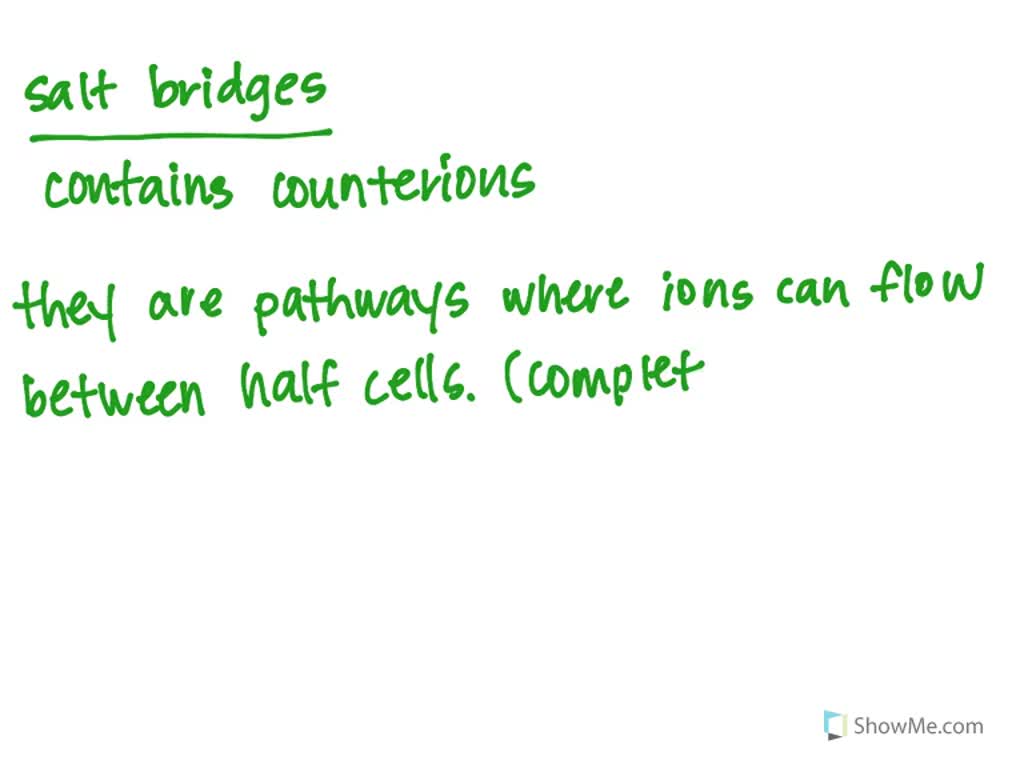 salt bridges
contains counterions
they are pathways where ions can flow
between half cells. (complet
ShowMe.com